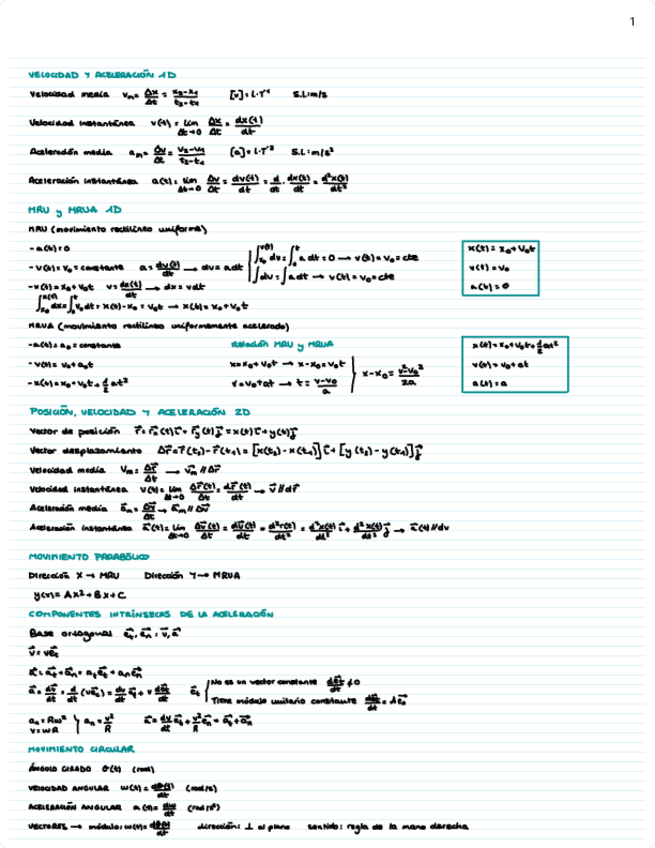 1
VELOCIDAD Y ACELERACIÓN 1D
Velocidad media vₘ = Δx/Δt = (x₂-x₁)/(t₂-t₁) [v] = L·T⁻¹ S.I.: m/s
Velocidad instantánea v(t) = lim Δt→0 Δx/Δt = dx(t)/dt
Aceleración media aₘ = Δv/Δt = (v₂-v₁)/(t₂-t₁) [a] = L·T⁻² S.I.: m/s²
Aceleración instantánea a(t) = lim Δt→0 Δv/Δt = dv(t)/dt = d/dt · dx(t)/dt = d²x(t)/dt²
MRU y MRUA 1D
MRU (movimiento rectilíneo uniforme)
- a(t) = 0
- v(t) = v₀ = constante a = dv(t)/dt → dv = a dt
∫dv = ∫a dt = 0 → v(t) = v₀ = cte
∫dv = ∫a dt → v(t) = v₀ = cte
- x(t) = x₀ + v₀t v = dx(t)/dt → dx = vdt
∫dx = ∫v₀dt = x(t) - x₀ = v₀t → x(t) = x₀ + v₀t
x(t) = x₀ + v₀t
v(t) = v₀
a(t) = 0
MRUA (movimiento rectilíneo uniformemente acelerado)
- a(t) = a₀ = constante
- v(t) = v₀ + a₀t
- x(t) = x₀ + v₀t + 1/2 at²
Relación MRU y MRUA
x = x₀ + v₀t → x - x₀ = v₀t
v = v₀ + at → t = (v-v₀)/a
x - x₀ = (v²-v₀²)/2a
x(t) = x₀ + v₀t + 1/2 at²
v(t) = v₀ + at
a(t) = a
POSICIÓN, VELOCIDAD Y ACELERACIÓN 2D
Vector de posición r⃗ = r⃗ₓ(t)i⃗ + r⃗ᵧ(t)j⃗ = x(t)i⃗ + y(t)j⃗
Vector desplazamiento Δr⃗ = r⃗(t₂) - r⃗(t₁) = [x(t₂) - x(t₁)]i⃗ + [y(t₂) - y(t₁)]j⃗
Velocidad media Vₘ = Δr⃗/Δt → v⃗ₘ // Δr⃗
Velocidad instantánea v(t) = lim Δt→0 Δr⃗(t)/Δt = dr⃗(t)/dt → v⃗ // dr⃗
Aceleración media a⃗ₘ = Δv⃗/Δt → a⃗ₘ // Δv⃗
Aceleración instantánea a⃗(t) = lim Δt→0 Δv⃗(t)/Δt = dv⃗(t)/dt = d²r(t)/dt² = d²x(t)/dt² i⃗ + d²x(t)/dt² j⃗ → a⃗(t) // dv
MOVIMIENTO PARABÓLICO
Dirección X → MRU Dirección Y → MRUA
y(x) = Ax² + Bx + C
COMPONENTES INTRÍNSECAS DE LA ACELERACIÓN
Base ortogonal e⃗ₜ, e⃗ₙ : v⃗, a⃗
v⃗ = ve⃗ₜ
a⃗ = a⃗ₜ + a⃗ₙ = aₜe⃗ₜ + aₙe⃗ₙ
a⃗ = dv⃗/dt = d/dt (ve⃗ₜ) = dv/dt e⃗ₜ + v de⃗ₜ/dt
e⃗ₜ { No es un vector constante de⃗ₜ/dt ≠ 0
Tiene módulo unitario constante de⃗ₜ/dt = Ae⃗ₙ
aₙ = Rω²
v = ωR
} aₙ = v²/R a⃗ = dv/dt e⃗ₜ + v²/R e⃗ₙ = a⃗ₜ + a⃗ₙ
MOVIMIENTO CIRCULAR
ÁNGULO GIRADO θ(t) (rad)
VELOCIDAD ANGULAR ω(t) = dθ(t)/dt (rad/s)
ACELERACIÓN ANGULAR α(t) = dω/dt (rad/s²)
VECTORES → módulo: ω(t) = dθ(t)/dt dirección: ⊥ al plano sentido: regla de la mano derecha